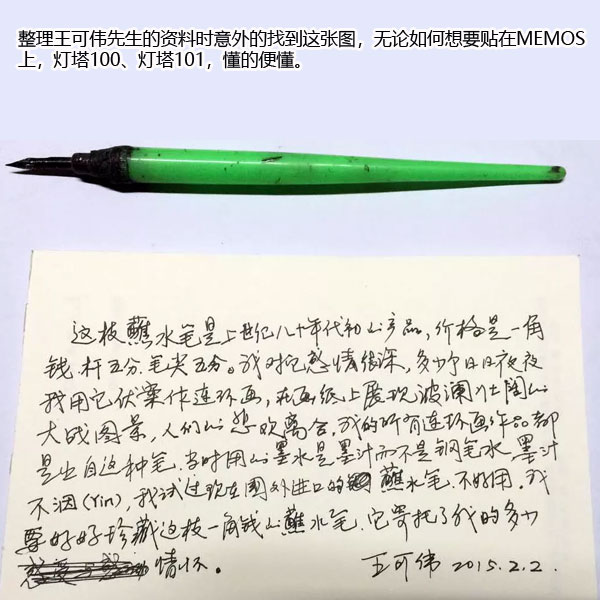 整理王可伟先生的资料时意外的找到这张图，无论如何想要贴在MEMOS
上，灯塔100、灯塔101，懂的便懂。
这枝蘸水笔是上世纪八十年代初的产品，价格是一角
钱.杆五分.笔尖五分。我对它感情很深，多少个日日夜夜
我用它伏案作连环画，在画纸上展现波澜壮阔的
大战图景，人们的悲欢离合，我的所有连环画作品都
是出自这种笔.当时用的墨水是墨汁而不是钢笔水，墨汁
不洇(Yin)，我试过现在国外进口的蘸水笔.不好用.我
要好好珍藏这枝一角钱的蘸水笔.它寄托了我的多少
情怀。 王可伟 2015.2.2.